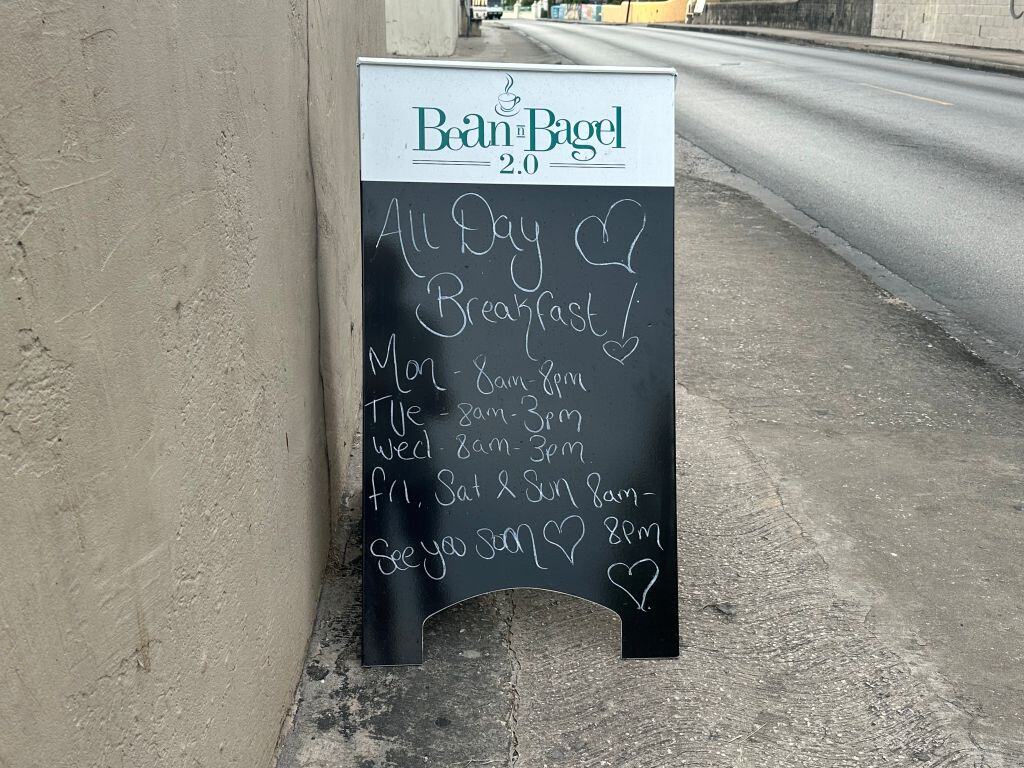 Bean n Bagel
2.0
All Day
Breakfast!
Mon - 8am-8pm
Tue - 8am-3pm
Wed - 8am-3pm
Fri, Sat & Sun 8am-
8pm
See you soon